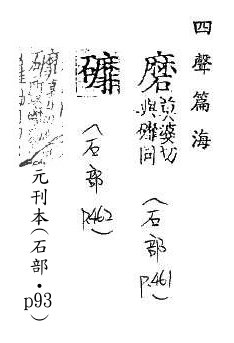 四聲篇海
磨莫婆切與䃺同(石部 p.461)
䃺(石部 p.462)
元刊本(石部・p93)